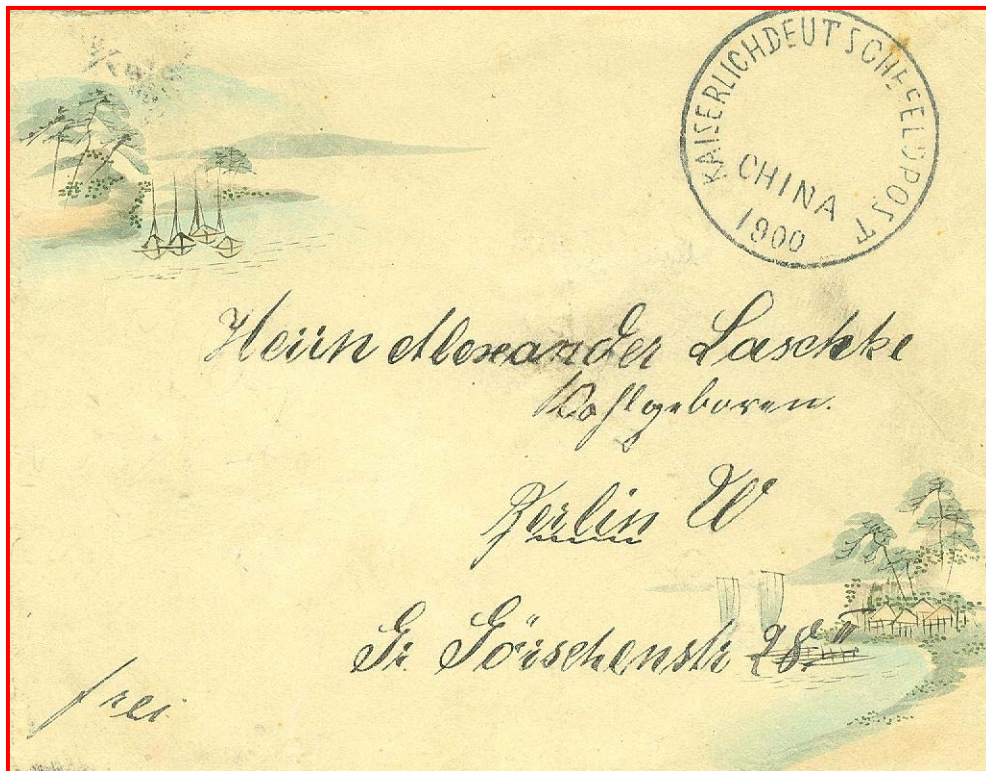 KAISERLICHDEUTSCHEFELDPOST
CHINA
1900
Herrn Alexander Laschke
Wohlgeboren.
Berlin W
Gr Görschenstr 28 II
frei